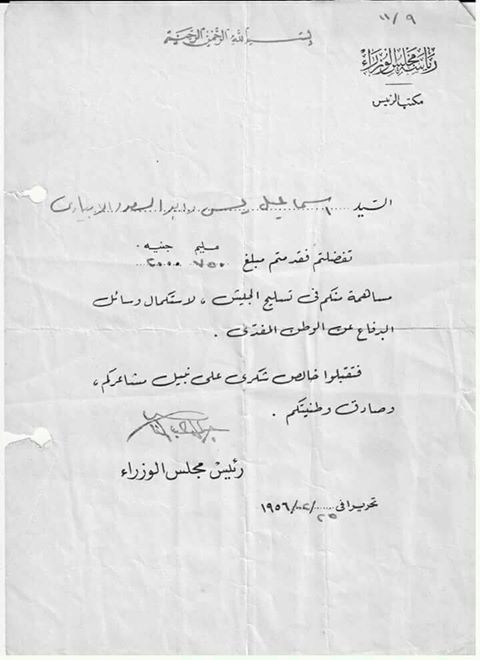 ١١/٩
بسم الله الرحمن الرحيم
رئاسة مجلس الوزراء
مكتب الرئيس
السيد اسماعيل يس وابو السعود الابيارى
مليم جنيه
تفضلتم فقدمتم مبلغ ٧٥٠ ٢٠٠٠
مساهمة منكم فى تسليح الجيش، لاستكمال وسائل
الدفاع عن الوطن المفدى.
فتقبلوا خالص شكرى على نبيل مشاعركم،
وصادق وطنيتكم.
رئيس مجلس الوزراء
تحريرا فى ٢٥/ /١٩٥٦